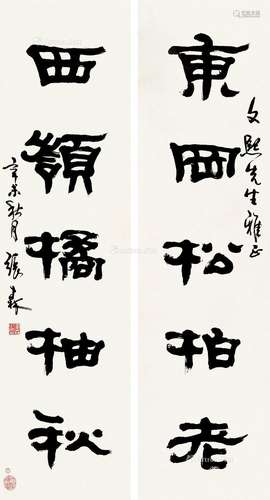 東岡松柏老
文熙先生雅正
西嶺橘柚秋
辛未秋月張森